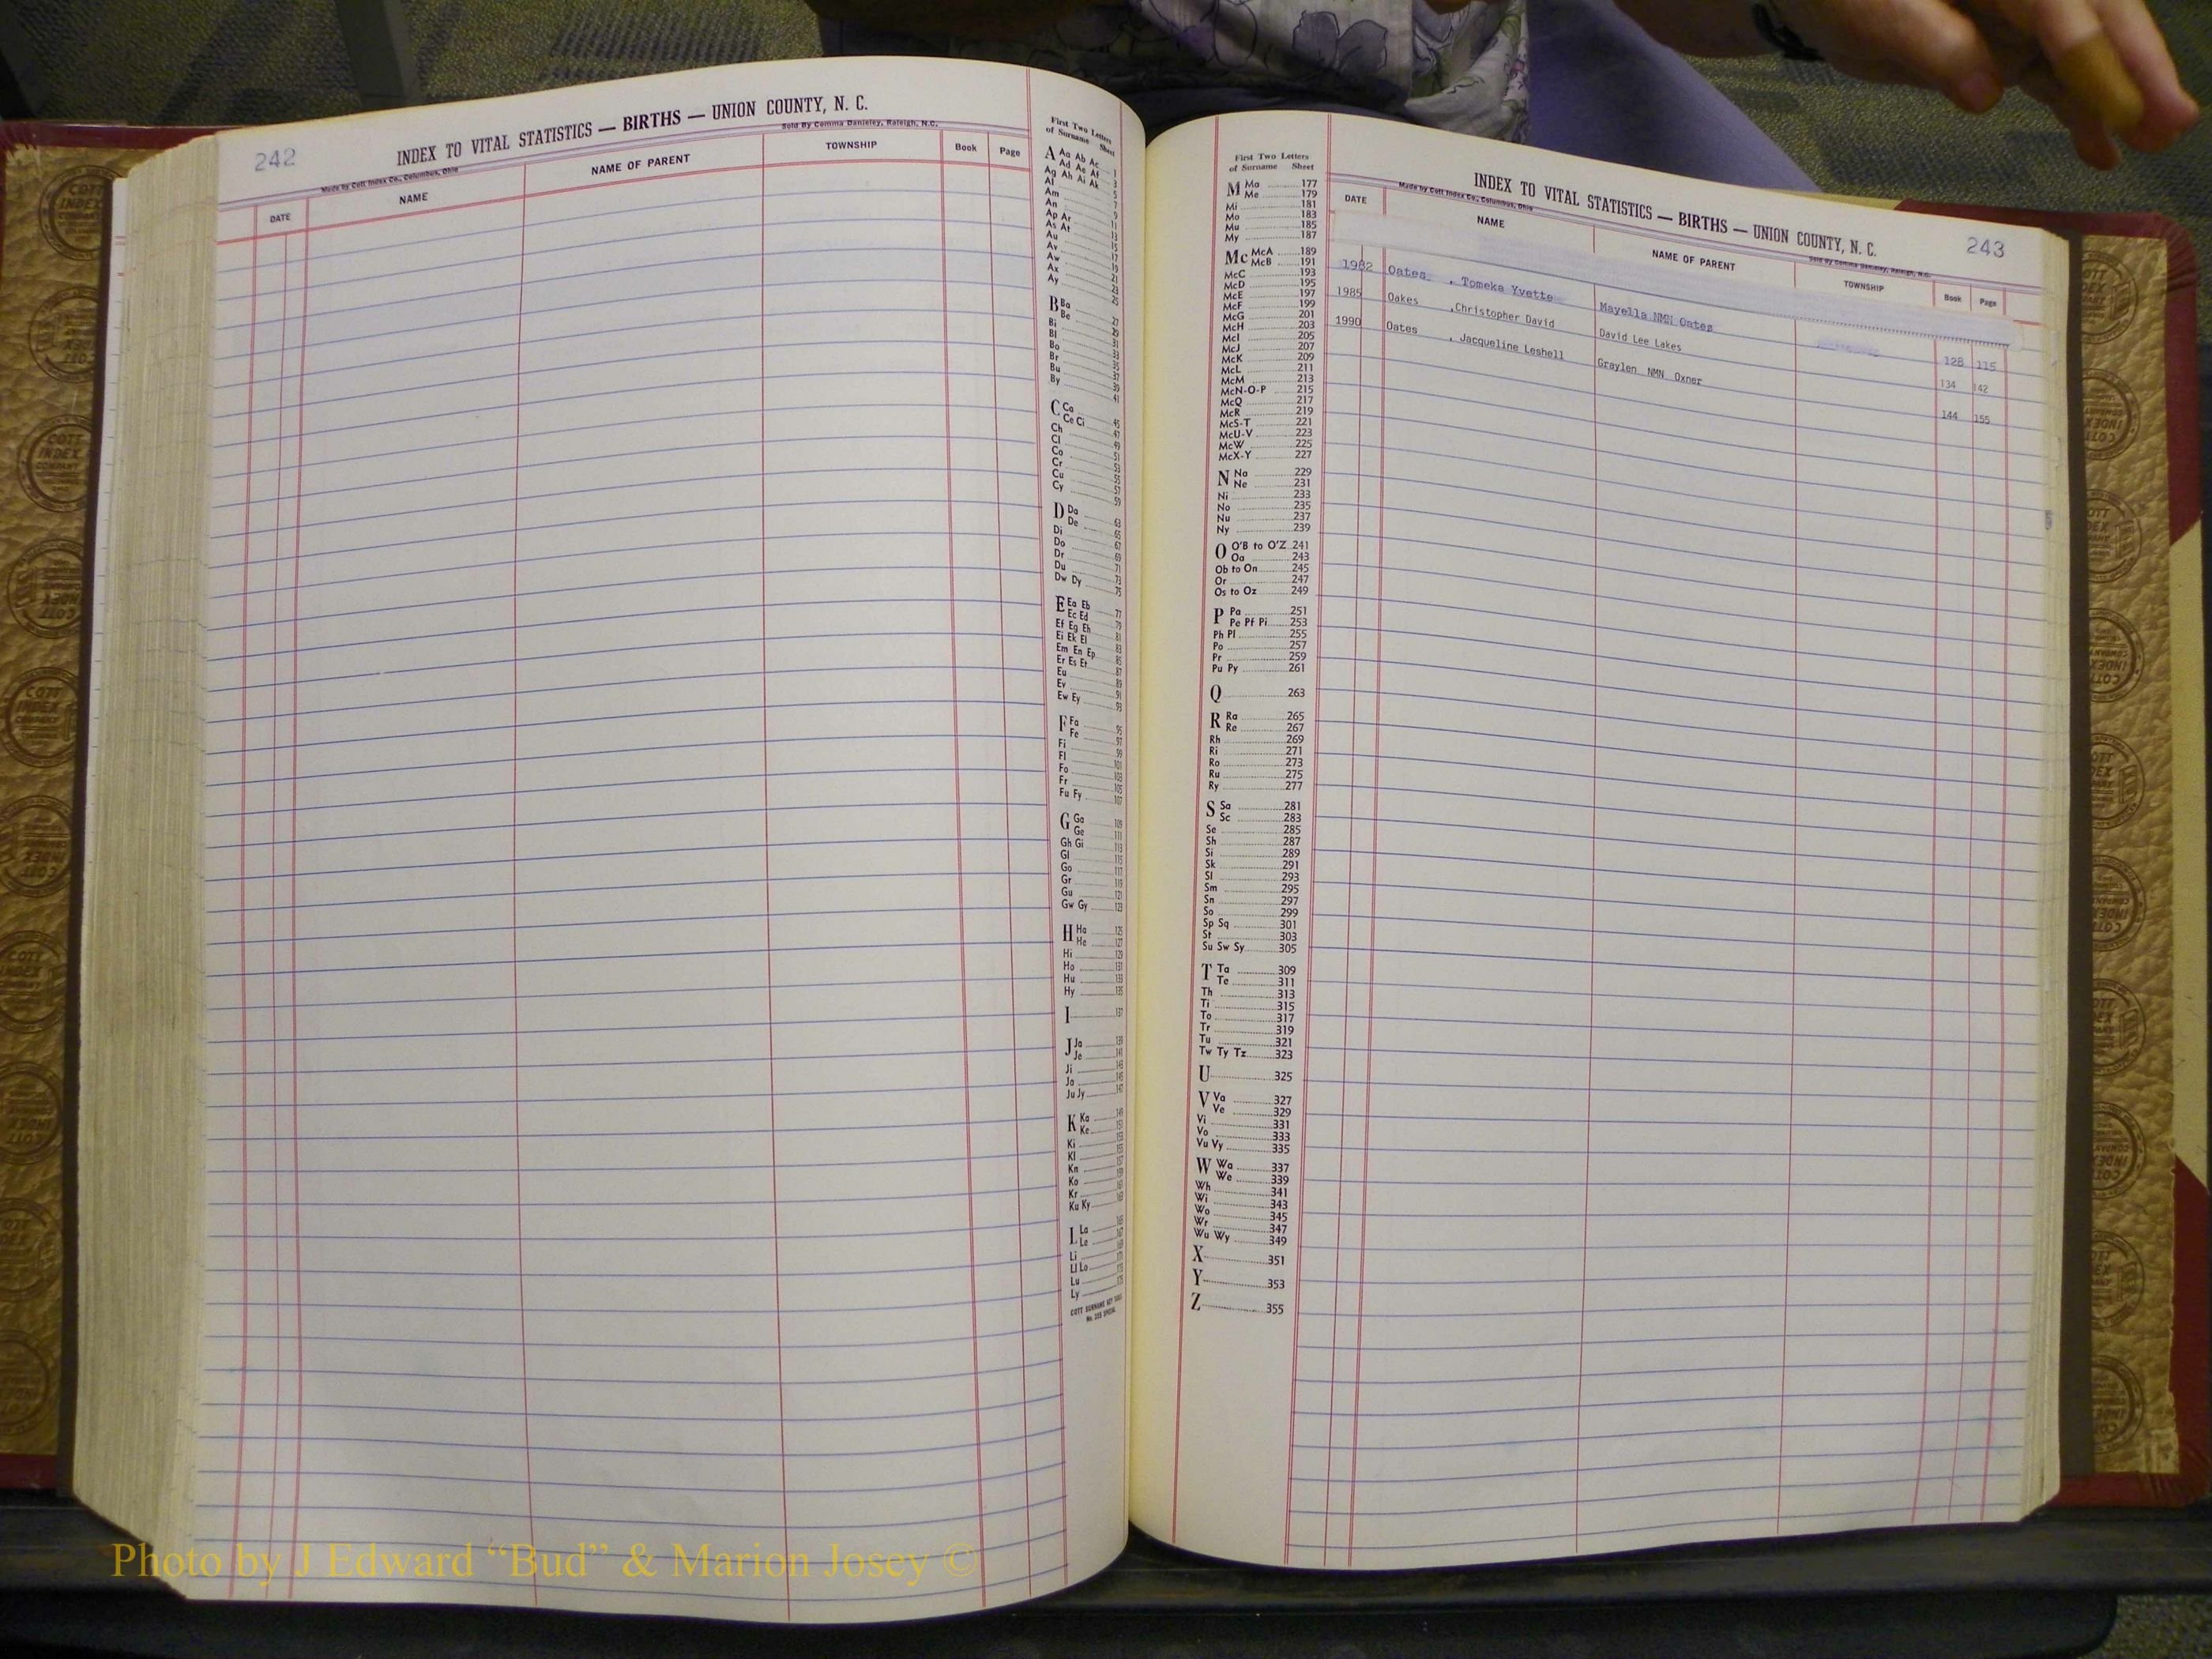 242
INDEX TO VITAL STATISTICS — BIRTHS — UNION COUNTY, N. C.
Made by Cott Index Co., Columbus, Ohio
Sold By Comma Danieley, Raleigh, N.C.
DATE NAME NAME OF PARENT TOWNSHIP Book Page
First Two Letters
of Surname Sheet
A Aa Ab Ac 1
Ad Ae Af 3
Ag Ah Ai Ak 5
Al 7
Am 9
An 11
Ap Ar 13
As At 15
Au 17
Av 19
Aw 21
Ax 23
Ay 25
B Ba 27
Be 29
Bi 31
Bl 33
Bo 35
Br 37
Bu 39
By 41
C Ca 45
Ce Ci 47
Ch 49
Cl 51
Co 53
Cr 55
Cu 57
Cy 59
D Da 63
De 65
Di 67
Do 69
Dr 71
Du 73
Dw Dy 75
E Ea Eb 77
Ec Ed 79
Ef Eg Eh 81
Ei Ek El 83
Em En Ep 85
Er Es Et 87
Eu 89
Ev 91
Ew Ey 93
F Fa 95
Fe 97
Fi 99
Fl 101
Fo 103
Fr 105
Fu Fy 107
G Ga 109
Ge 111
Gh Gi 113
Gl 115
Go 117
Gr 119
Gu 121
Gw Gy 123
H Ha 125
He 127
Hi 129
Ho 131
Hu 133
Hy 135
I 137
J Ja 139
Je 141
Ji 143
Jo 145
Ju Jy 147
K Ka 149
Ke
Ki
Kl
Kn
Ko
Kr
Ku Ky
L La
Le
Li
Ll Lo
Lu
Ly
First Two Letters
of Surname Sheet
M Ma 177
Me 179
Mi 181
Mo 183
Mu 185
My 187
Mc McA 189
McB 191
McC 193
McD 195
McE 197
McF 199
McG 201
McH 203
McI 205
McJ 207
McK 209
McL 211
McM 213
McN-O-P 215
McQ 217
McR 219
McS-T 221
McU-V 223
McW 225
McX-Y 227
N Na 229
Ne 231
Ni 233
No 235
Nu 237
Ny 239
O O'B to O'Z 241
Oa 243
Ob to On 245
Or 247
Os to Oz 249
P Pa 251
Pe Pf Pi 253
Ph Pl 255
Po 257
Pr 259
Pu Py 261
Q 263
R Ra 265
Re 267
Rh 269
Ri 271
Ro 273
Ru 275
Ry 277
S Sa 281
Sc 283
Se 285
Sh 287
Si 289
Sk 291
Sl 293
Sm 295
Sn 297
So 299
Sp Sq 301
St 303
Su Sw Sy 305
T Ta 309
Te 311
Th 313
Ti 315
To 317
Tr 319
Tu 321
Tw Ty Tz 323
U 325
V Va 327
Ve 329
Vi 331
Vo 333
Vu Vy 335
W Wa 337
We 339
Wh 341
Wi 343
Wo 345
Wr 347
Wu Wy 349
X 351
Y 353
Z 355
243
INDEX TO VITAL STATISTICS — BIRTHS — UNION COUNTY, N. C.
Made by Cott Index Co., Columbus, Ohio
Sold By Comma Danieley, Raleigh, N.C.
DATE NAME NAME OF PARENT TOWNSHIP Book Page
1982 Oates , Tomeka Yvette Mayella NMN Oates 128 115
1985 Oakes ,Christopher David David Lee Lakes 134 142
1990 Oates , Jacqueline Leshell Graylen NMN Oxner 144 155
Photo by J Edward “Bud” & Marion Josey ©